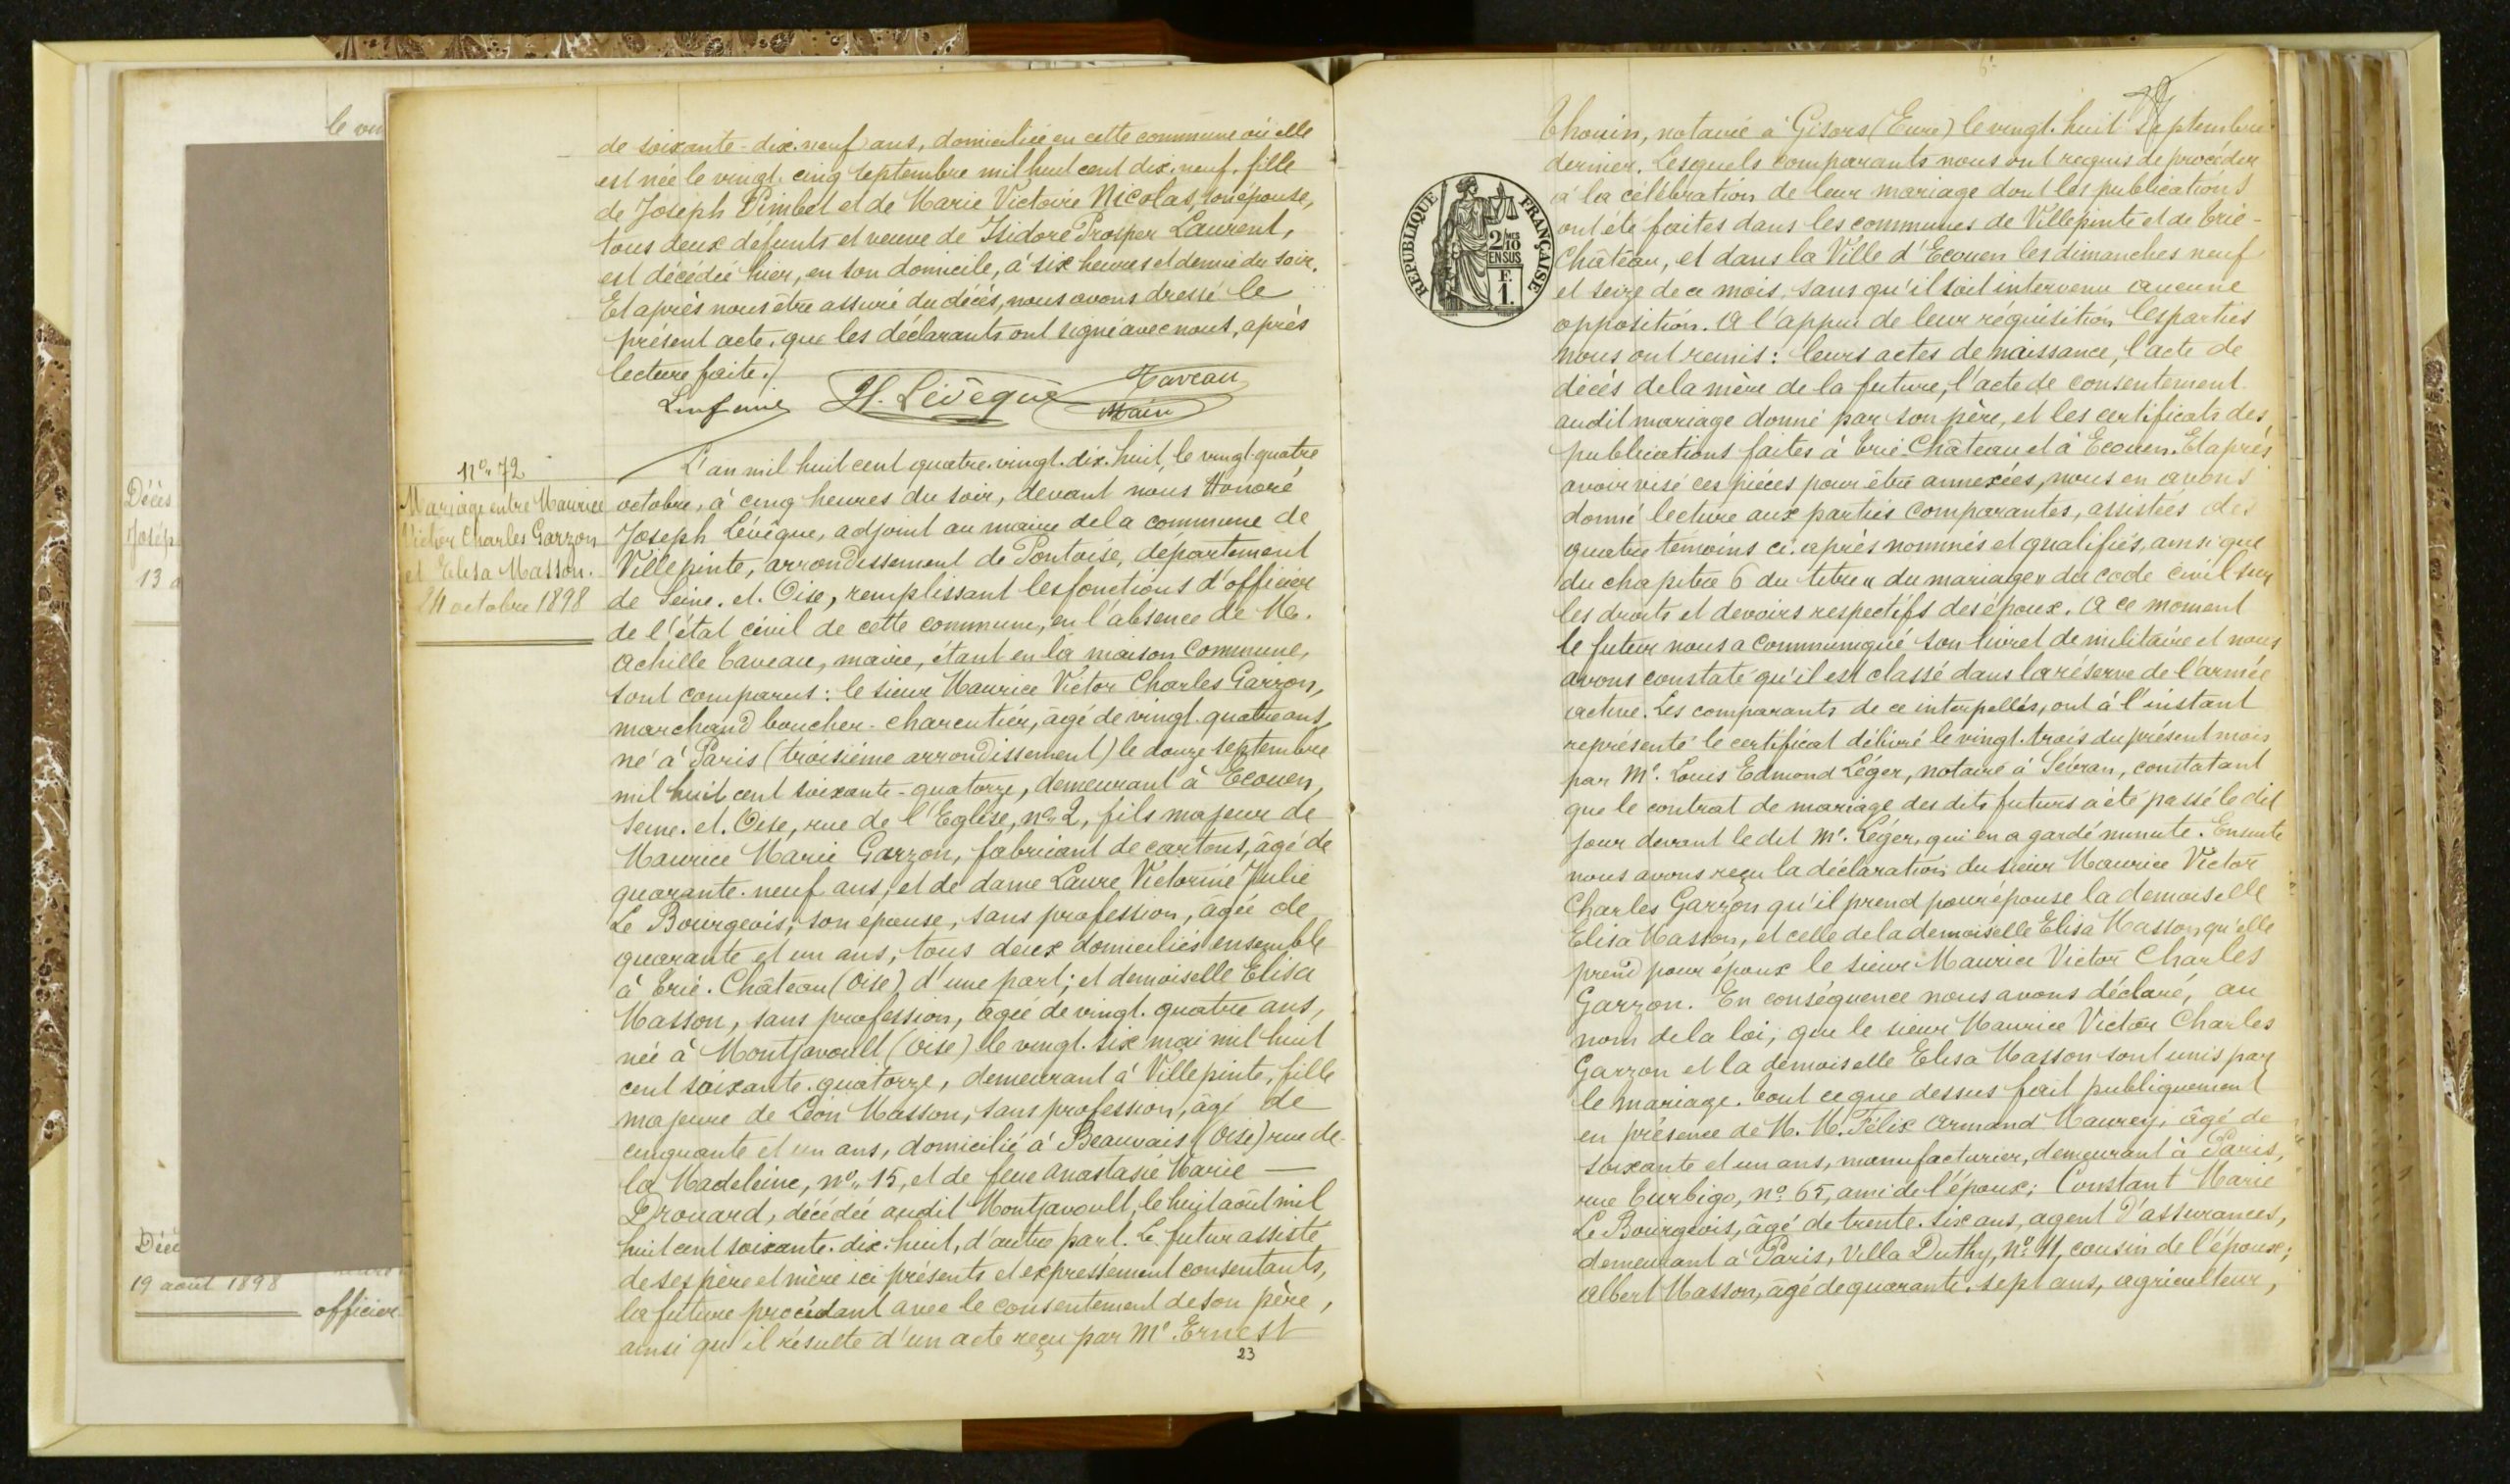 le
Décès
Josép
13 a
Décè
19 août 1898
officier
de soixante-dix-neuf ans, domiciliée en cette commune où elle
est née le vingt-cinq septembre mil huit cent dix-neuf, fille
de Joseph Pimbet et de Marie Victoire Nicolas, son épouse,
tous deux défunts et veuve de Isidore Prosper Laurent,
est décédée hier, en son domicile, à six heures et demie du soir.
Et après nous être assuré du décès, nous avons dressé le
présent acte, que les déclarants ont signé avec nous, après
lecture faite./.
H. Lévêque Taveau
Main
No. 72
Mariage entre Maurice
Victor Charles Garzon
et Elisa Masson.
24 octobre 1898
L'an mil huit cent quatre-vingt-dix-huit, le vingt-quatre
octobre, à cinq heures du soir, devant nous Honoré
Joseph Lévêque, adjoint au maire de la commune de
Villepinte, arrondissement de Pontoise, département
de Seine-et-Oise, remplissant les fonctions d'officier
de l'état civil de cette commune, en l'absence de M.
Achille Taveau, maire, étant en la maison commune,
sont comparus : le sieur Maurice Victor Charles Garzon,
marchand boucher-charcutier, âgé de vingt-quatre ans,
né à Paris (troisième arrondissement) le douze septembre
mil huit cent soixante-quatorze, demeurant à Ecouen,
Seine-et-Oise, rue de l'Eglise, no. 2, fils majeur de
Maurice Marie Garzon, fabricant de cartons, âgé de
quarante-neuf ans, et de dame Laure Victorine Julie
Le Bourgeois, son épouse, sans profession, âgée de
quarante et un ans, tous deux domiciliés ensemble
à Trie-Château (Oise) d'une part ; et demoiselle Elisa
Masson, sans profession, âgée de vingt-quatre ans,
née à Montjavoult (Oise) le vingt-six mai mil huit
cent soixante-quatorze, demeurant à Villepinte, fille
majeure de Léon Masson, sans profession, âgé de
cinquante et un ans, domicilié à Beauvais (Oise) rue de
la Madeleine, no. 15, et de feue Anastasie Marie —
Drouard, décédée audit Montjavoult, le huit août mil
huit cent soixante-dix-huit, d'autre part. Le futur assisté
de ses père et mère ici présents et expressément consentants,
la future procédant avec le consentement de son père,
ainsi qu'il résulte d'un acte reçu par Me Ernest
23
REPUBLIQUE FRANÇAISE
2/10MES
EN SUS
F.
1.
Thouin, notaire à Gisors (Eure) le vingt-huit septembre
dernier. Lesquels comparants nous ont requis de procéder
à la célébration de leur mariage dont les publications
ont été faites dans les communes de Villepinte et de Trie-
Château, et dans la Ville d'Ecouen les dimanches neuf
et seize de ce mois, sans qu'il soit intervenu aucune
opposition. A l'appui de leur réquisition, les parties
nous ont remis : leurs actes de naissance, l'acte de
décès de la mère de la future, l'acte de consentement
audit mariage donné par son père, et les certificats des
publications faites à Trie-Château et à Ecouen. Et après
avoir visé ces pièces pour être annexées, nous en avons
donné lecture aux parties comparantes, assistées des
quatre témoins ci-après nommés et qualifiés, ainsi que
du chapitre 6 du titre « du mariage » du code civil sur
les droits et devoirs respectifs des époux. A ce moment
le futur nous a communiqué son livret de militaire et nous
avons constaté qu'il est classé dans la réserve de l'armée
active. Les comparants de ce interpellés, ont à l'instant
représenté le certificat délivré le vingt-trois du présent mois
par Me. Louis Edmond Léger, notaire à Sevran, constatant
que le contrat de mariage des dits futurs a été passé le dit
jour devant le dit Me. Léger, qui en a gardé minute. Ensuite
nous avons reçu la déclaration du sieur Maurice Victor
Charles Garzon qu'il prend pour épouse la demoiselle
Elisa Masson, et celle de la demoiselle Elisa Masson qu'elle
prend pour époux le sieur Maurice Victor Charles
Garzon. En conséquence nous avons déclaré, au
nom de la loi, que le sieur Maurice Victor Charles
Garzon et la demoiselle Elisa Masson sont unis par
le mariage. Tout ce que dessus fait publiquement
en présence de M. M. Félix Armand Maurey, âgé de
soixante et un ans, manufacturier, demeurant à Paris,
rue Turbigo, no. 65, ami de l'époux ; Constant Marie
Le Bourgeois, âgé de trente-six ans, agent d'assurances,
demeurant à Paris, Villa Duthy, no. 11, cousin de l'époux ;
Albert Masson, âgé de quarante-sept ans, agriculteur,